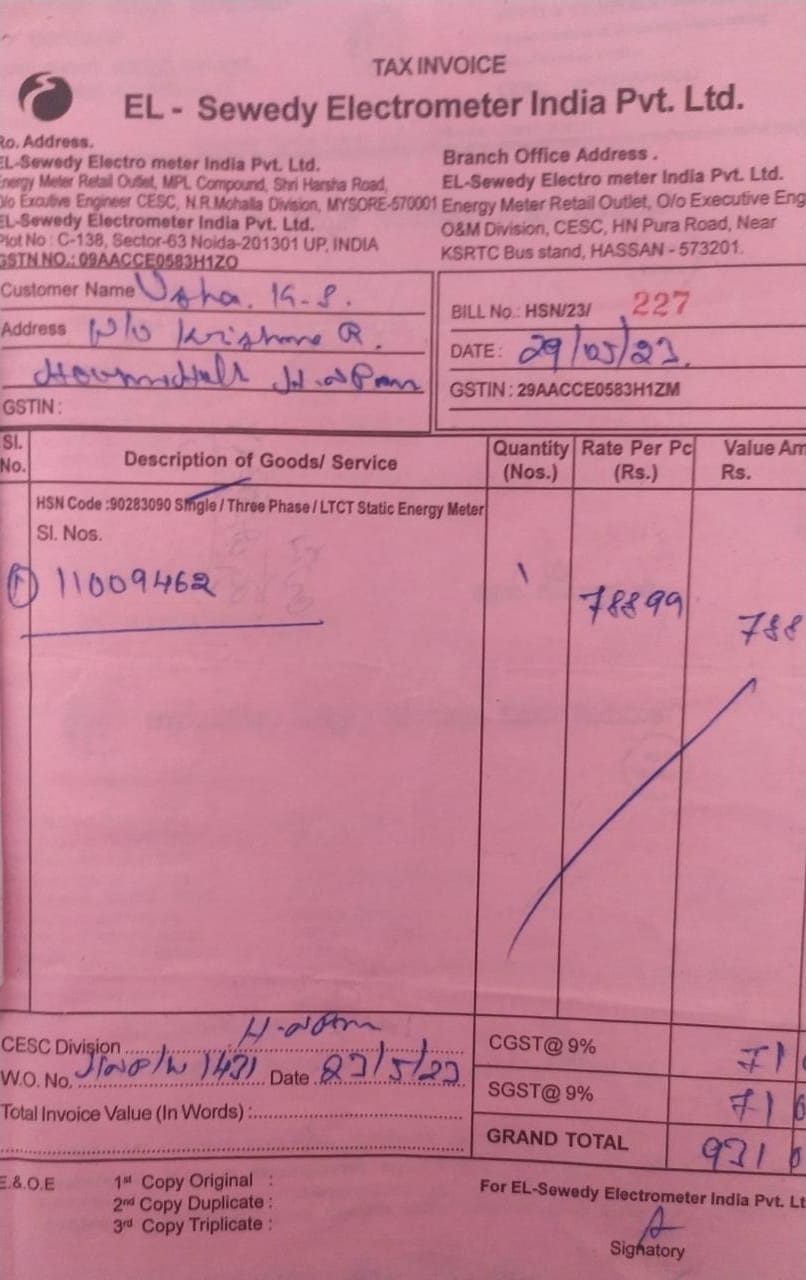 TAX INVOICE
EL - Sewedy Electrometer India Pvt. Ltd.
Ro. Address.
EL-Sewedy Electro meter India Pvt. Ltd.
Energy Meter Retail Outlet, MPL Compound, Shri Harsha Road,
O/o Excutive Engineer CESC, N.R.Mohalla Division, MYSORE-570001
EL-Sewedy Electrometer India Pvt. Ltd.
Plot No : C-138, Sector-63 Noida-201301 UP, INDIA
GSTN NO.: 09AACCE0583H1ZO
Branch Office Address .
EL-Sewedy Electro meter India Pvt. Ltd.
Energy Meter Retail Outlet, O/o Executive Eng
O&M Division, CESC, HN Pura Road, Near
KSRTC Bus stand, HASSAN - 573201.
Customer Name Usha. K-S.
Address W/o Krishna R.
GSTIN :
BILL No.: HSN/23/ 227
DATE : 29/05/23.
GSTIN : 29AACCE0583H1ZM
Sl. No. Description of Goods/ Service Quantity (Nos.) Rate Per Pc (Rs.) Value Am Rs.
HSN Code :90283090 Single / Three Phase / LTCT Static Energy Meter
Sl. Nos.
11009462 1 78899 788
CESC Division
W.O. No. 1431 Date 23/5/23
Total Invoice Value (In Words) :
CGST@ 9% 71
SGST@ 9% 71
GRAND TOTAL 931
E.&.O.E
1st Copy Original :
2nd Copy Duplicate :
3rd Copy Triplicate :
For EL-Sewedy Electrometer India Pvt. Lt
Signatory